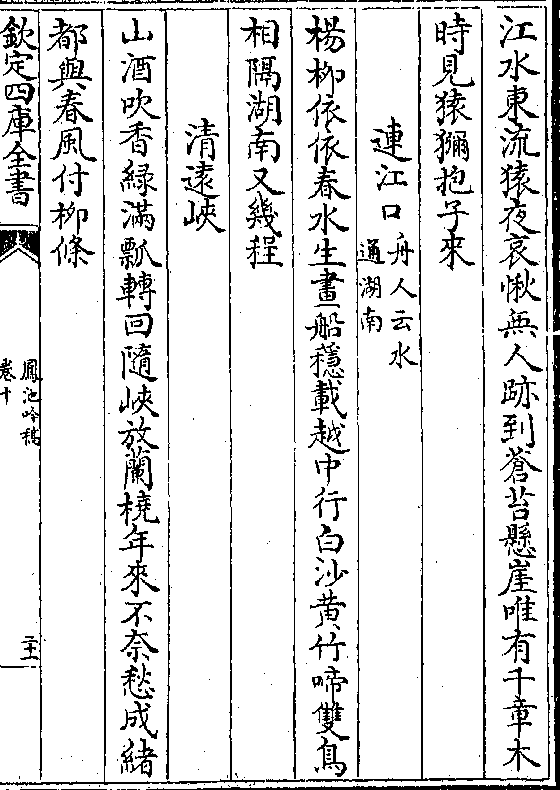 江水東流猿夜哀愀無人跡到蒼苔懸崖唯有千章木
時見猿猵抱子來
連江口舟人云水
通湖南
楊柳依依春水生畫船穩載越中行白沙黄竹啼雙鳥
相隔湖南又幾程
清遠峽
山酒吹香緑滿瓢轉回隨峽放蘭橈年來不奈愁成緒
都與春風付柳條
欽定四庫全書
鳳池吟稿
卷十
二十一